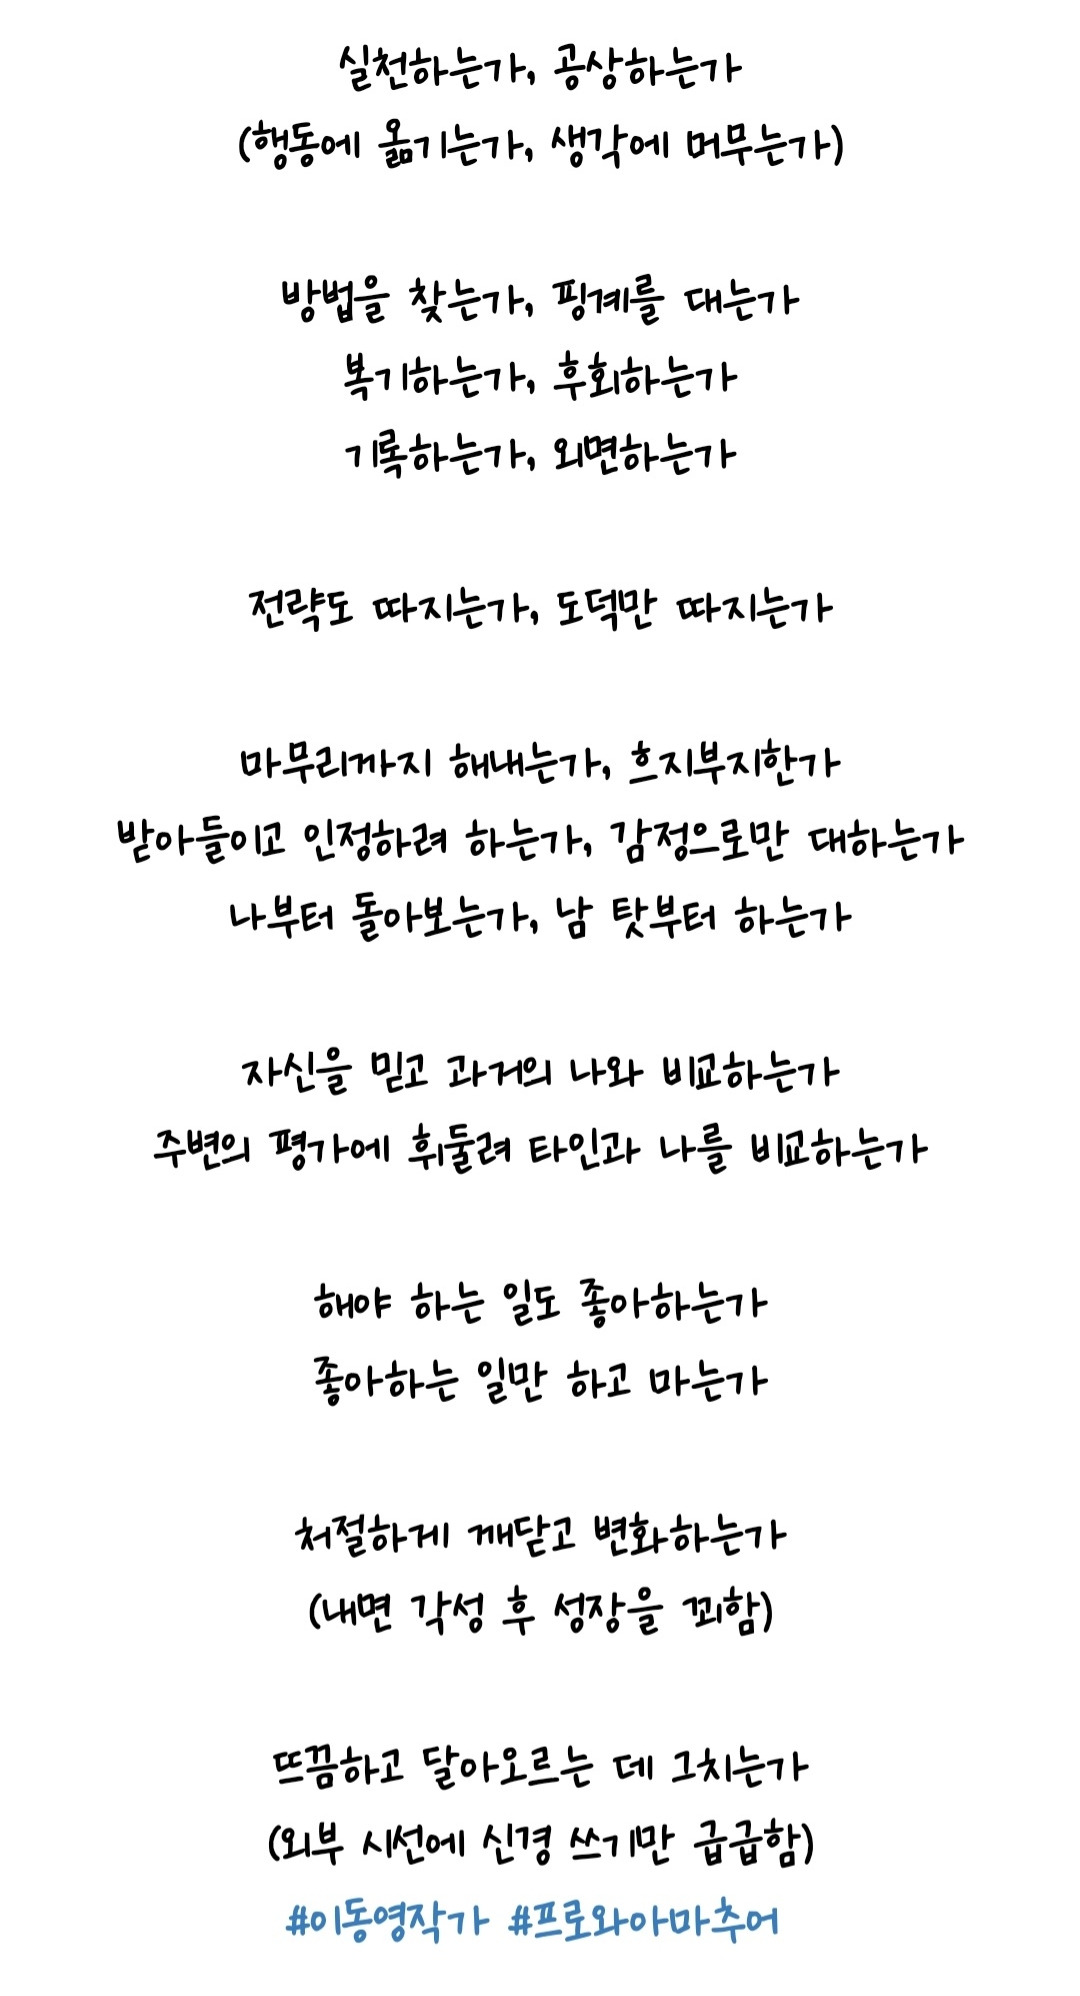 실천하는가, 공상하는가
(행동에 옮기는가, 생각에 머무는가)
방법을 찾는가, 핑계를 대는가
복기하는가, 후회하는가
기록하는가, 외면하는가
전략도 따지는가, 도덕만 따지는가
마무리까지 해내는가, 흐지부지한가
받아들이고 인정하려 하는가, 감정으로만 대하는가
나부터 돌아보는가, 남 탓부터 하는가
자신을 믿고 과거의 나와 비교하는가
주변의 평가에 휘둘려 타인과 나를 비교하는가
해야 하는 일도 좋아하는가
좋아하는 일만 하고 마는가
처절하게 깨닫고 변화하는가
(내면 각성 후 성장을 꾀함)
뜨끔하고 달아오르는 데 그치는가
(외부 시선에 신경 쓰기만 급급함)
#이동영작가 #프로와아마추어